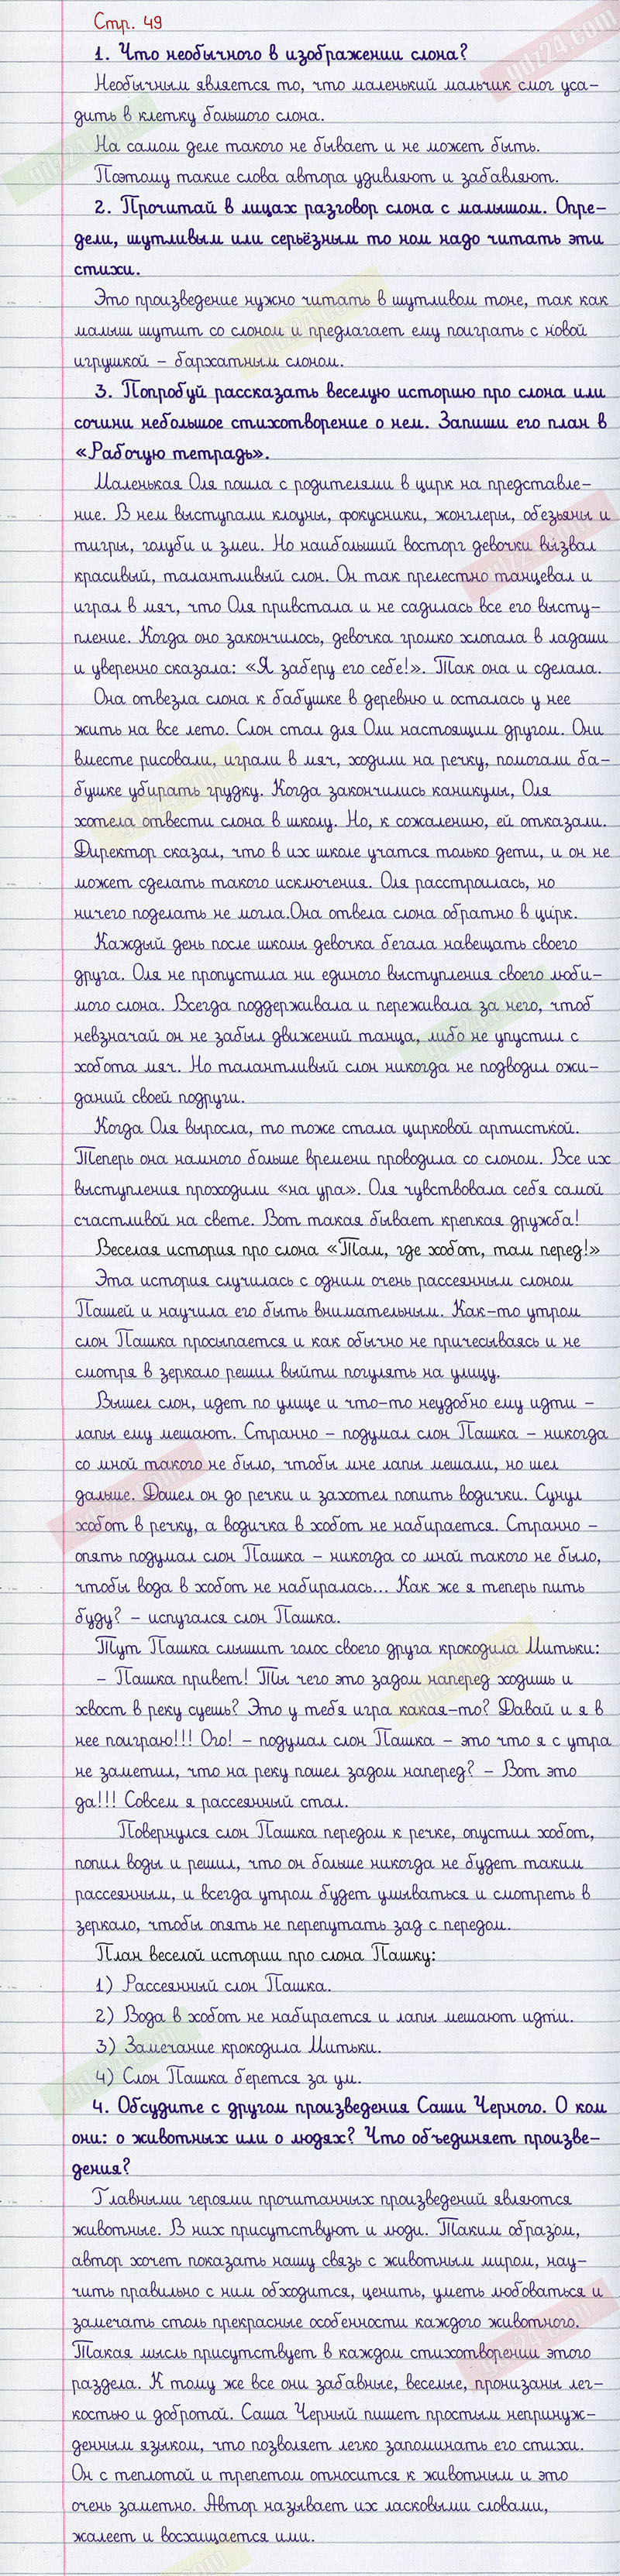 Стр. 49
1. Что необычного в изображении слона?
Необычным является то, что маленький мальчик смог уса-
дить в клетку большого слона.
На самом деле такого не бывает и не может быть.
Поэтому такие слова автора удивляют и забавляют.
2. Прочитай в лицах разговор слона с малышом. Опре-
дели, шутливым или серьёзным то ном надо читать эти
стихи.
Это произведение нужно читать в шутливом тоне, так как
малыш шутит со слоном и предлагает ему поиграть с новой
игрушкой – бархатным слоном.
3. Попробуй рассказать веселую историю про слона или
сочини небольшое стихотворение о нем. Запиши его план в
«Рабочую тетрадь».
Маленькая Оля пошла с родителями в цирк на представле-
ние. В нем выступали клоуны, фокусники, жонглеры, обезьяны и
тигры, голуби и змеи. Но наибольший восторг девочки вызвал
красивый, талантливый слон. Он так прелестно танцевал и
играл в мяч, что Оля привстала и не садилась все его высту-
пление. Когда оно закончилось, девочка громко хлопала в ладоши
и уверенно сказала: «Я заберу его себе!». Так она и сделала.
Она отвезла слона к бабушке в деревню и осталась у нее
жить на все лето. Слон стал для Оли настоящим другом. Они
вместе рисовали, играли в мяч, ходили на речку, помогали ба-
бушке убирать грудку. Когда закончились каникулы, Оля
хотела отвести слона в школу. Но, к сожалению, ей отказали.
Директор сказал, что в их школе учатся только дети, и он не
может сделать такого исключения. Оля расстроилась, но
ничего поделать не могла.Она отвела слона обратно в цирк.
Каждый день после школы девочка бегала навещать своего
друга. Оля не пропустила ни единого выступления своего люби-
мого слона. Всегда поддерживала и переживала за него, чтоб
невзначай он не забыл движений танца, либо не упустил с
хобота мяч. Но талантливый слон никогда не подводил ожи-
даний своей подруги.
Когда Оля выросла, то тоже стала цирковой артисткой.
Теперь она намного больше времени проводила со слоном. Все их
выступления проходили «на ура». Оля чувствовала себя самой
счастливой на свете. Вот такая бывает крепкая дружба!
Веселая история про слона «Там, где хобот, там перед!»
Эта история случилась с одним очень рассеянным слоном
Пашей и научила его быть внимательным. Как-то утром
слон Пашка просыпается и как обычно не причесываясь и не
смотря в зеркало решил выйти погулять на улицу.
Вышел слон, идет по улице и что-то неудобно ему идти –
лапы ему мешают. Странно – подумал слон Пашка – никогда
со мной такого не было, чтобы мне лапы мешали, но шел
дальше. Дошел он до речки и захотел попить водички. Сунул
хобот в речку, а водичка в хобот не набирается. Странно –
опять подумал слон Пашка – никогда со мной такого не было,
чтобы вода в хобот не набиралась... Как же я теперь пить
буду? – испугался слон Пашка.
Тут Пашка слышит голос своего друга крокодила Митьки:
– Пашка привет! Ты чего это задом наперед ходишь и
хвост в реку суешь? Это у тебя игра какая-то? Давай и я в
нее поиграю!!! Ого! – подумал слон Пашка – это что я с утра
не заметил, что на реку пошел задом наперед? – Вот это
да!!! Совсем я рассеянный стал.
Повернулся слон Пашка передом к речке, опустил хобот,
попил воды и решил, что он больше никогда не будет таким
рассеянным, и всегда утром будет умываться и смотреть в
зеркало, чтобы опять не перепутать зад с передом.
План веселой истории про слона Пашку:
1) Рассеянный слон Пашка.
2) Вода в хобот не набирается и лапы мешают идти.
3) Замечание крокодила Митьки.
4) Слон Пашка берется за ум.
4. Обсудите с другом произведения Саши Черного. О ком
они: о животных или о людях? Что объединяет произве-
дения?
Главными героями прочитанных произведений являются
животные. В них присутствуют и люди. Таким образом,
автор хочет показать нашу связь с животным миром, нау-
чить правильно с ним обходится, ценить, уметь любоваться и
замечать столь прекрасные особенности каждого животного.
Такая мысль присутствует в каждом стихотворении этого
раздела. К тому же все они забавные, веселые, пронизаны лег-
костью и добротой. Саша Черный пишет простым непринуж-
денным языком, что позволяет легко запоминать его стихи.
Он с теплотой и трепетом относится к животным и это
очень заметно. Автор называет их ласковыми словами,
жалеет и восхищается ими.